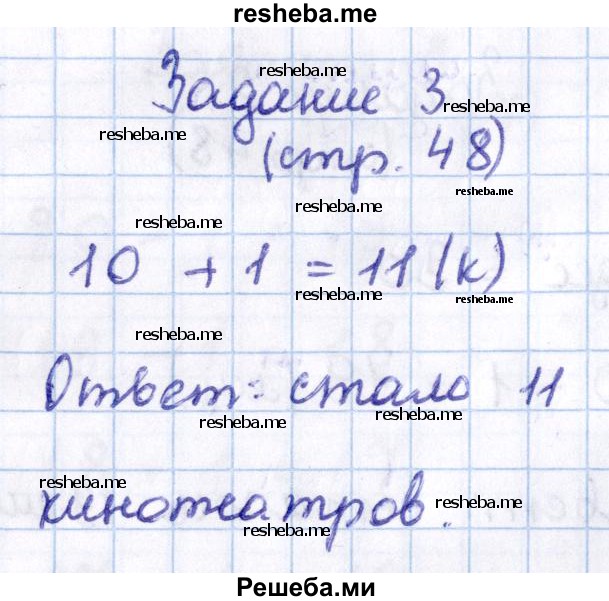 resheba.me
Задание 3
resheba.me
resheba.me
resheba.me
(стр. 48)
resheba.me
resheba.me
resheba.me
10 + 1 = 11 (к)
resheba.me
resheba.me
resheba.me
Ответ: стало 11
resheba.me
resheba.me
resheba.me
кинотеатров.
resheba.me
resheba.me
Решеба.ми